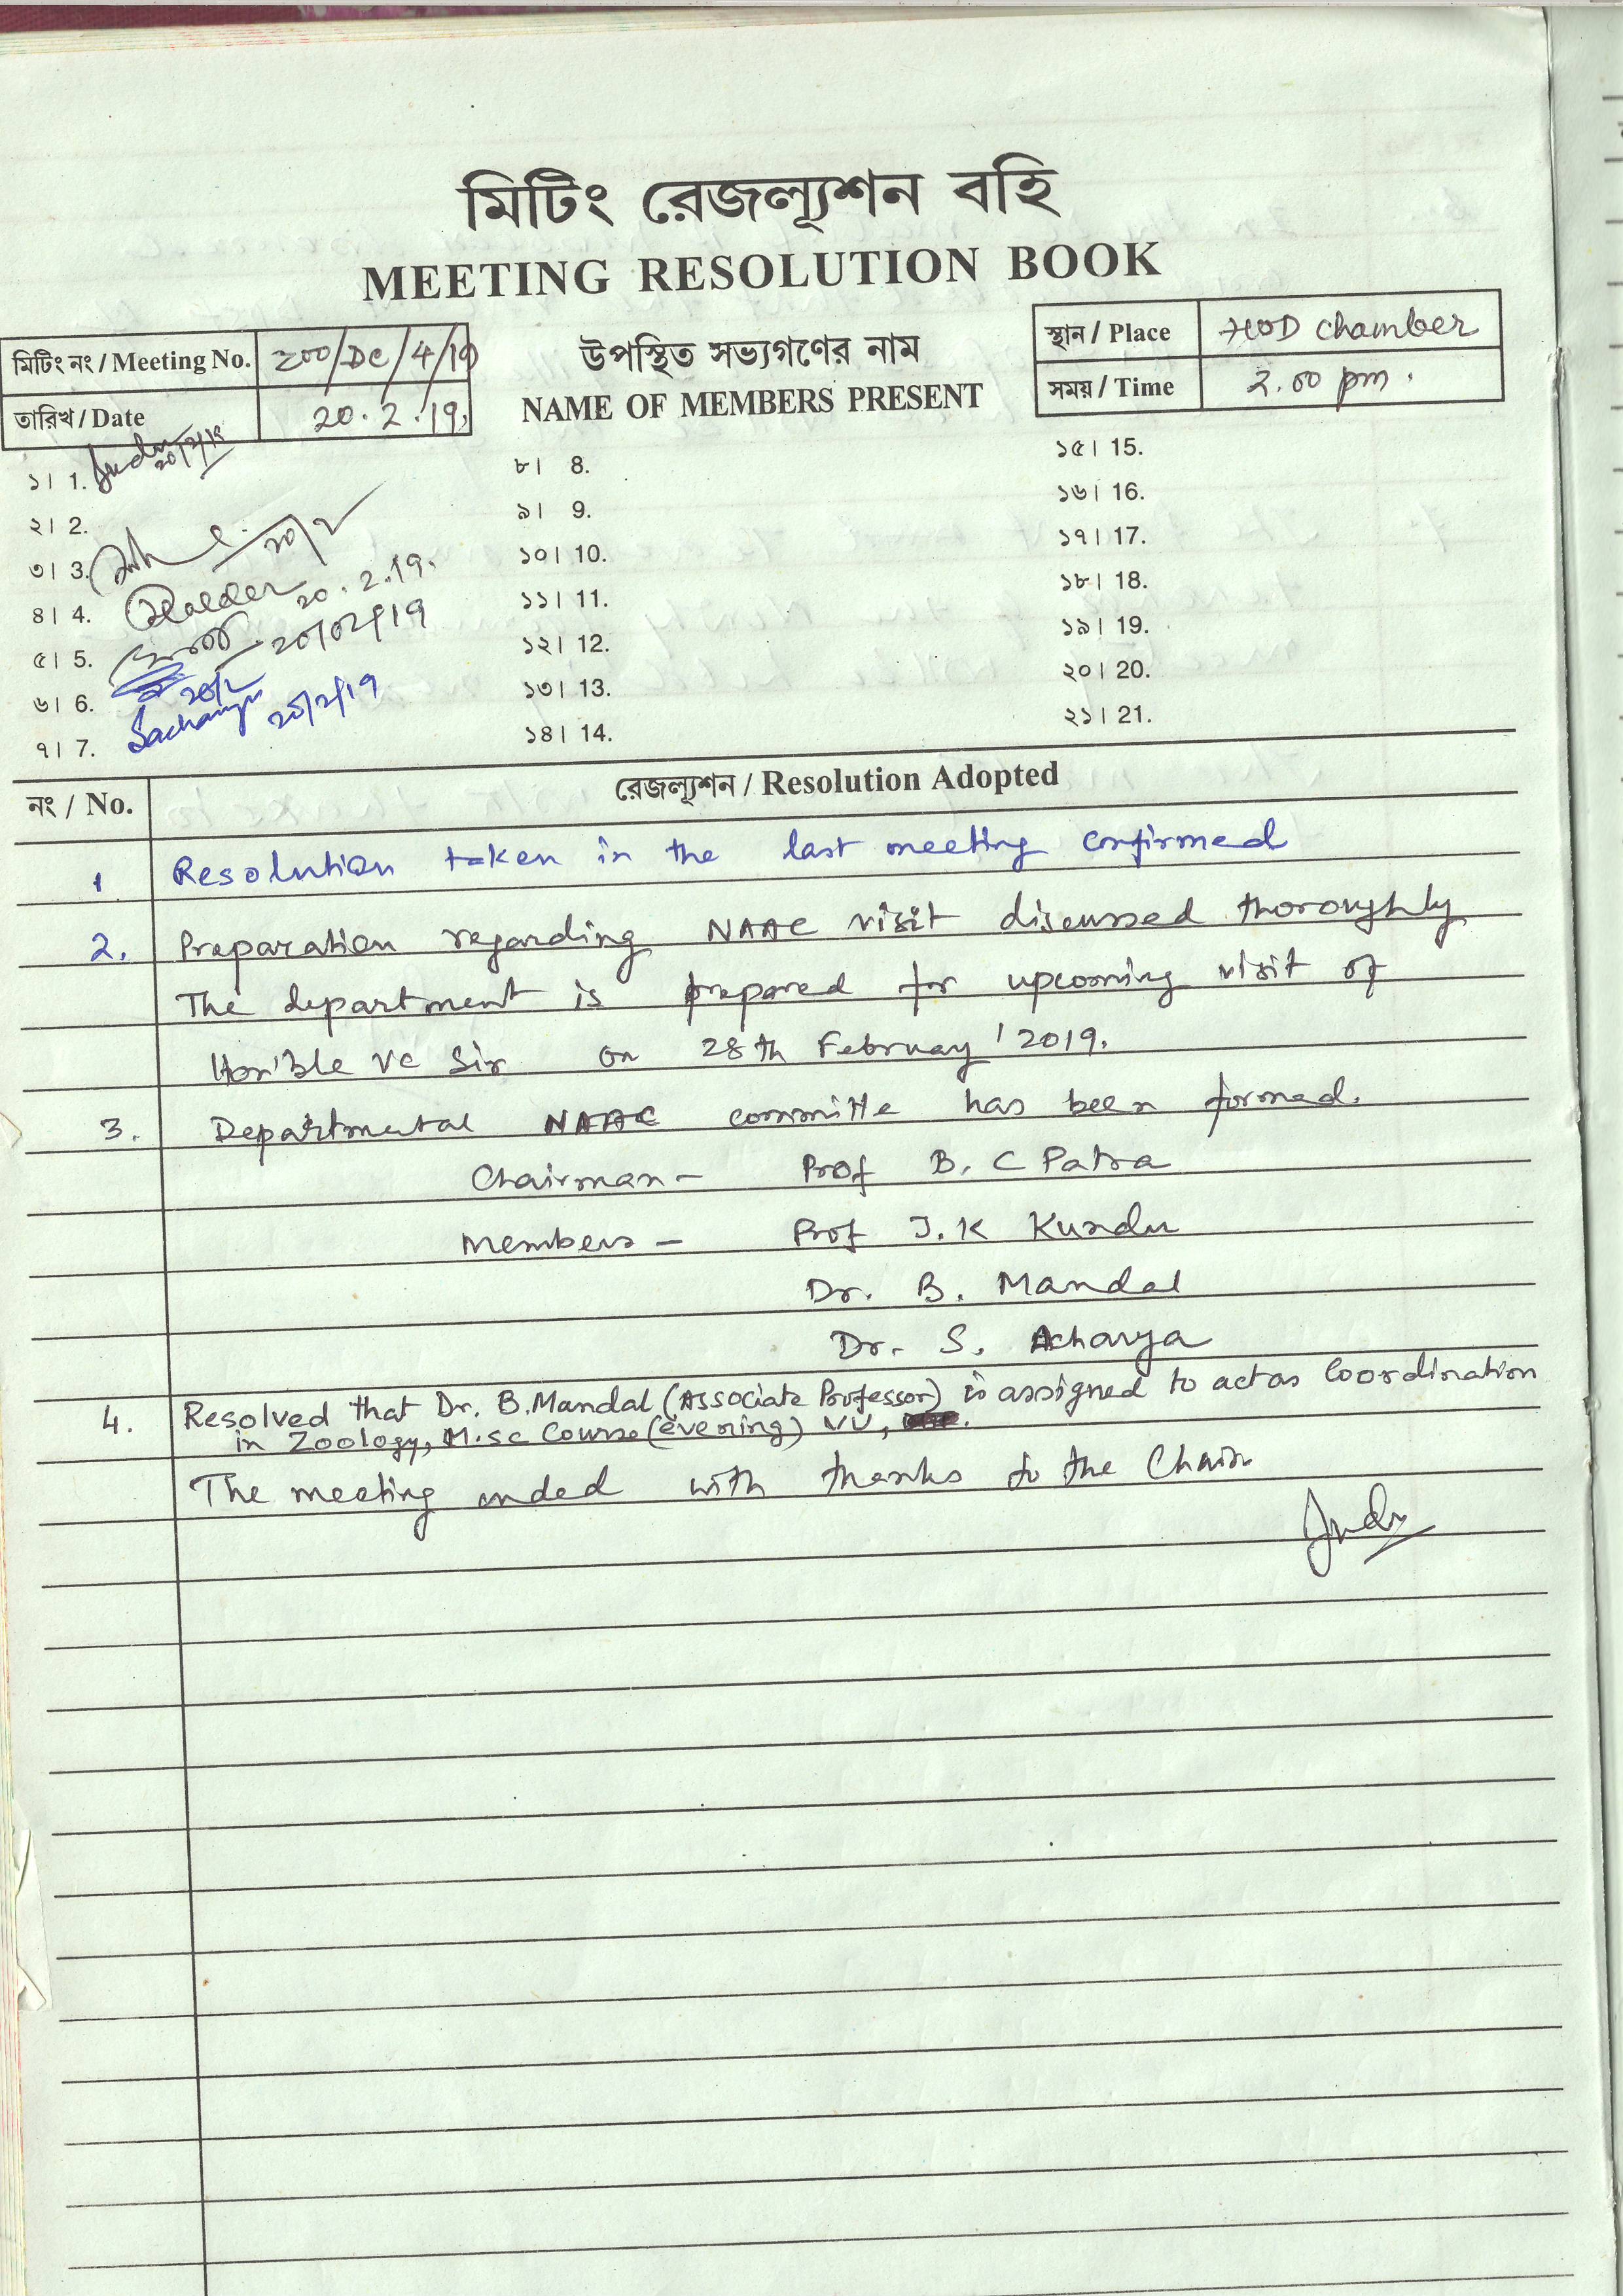 মিটিং রেজল্যূশন বহি
MEETING RESOLUTION BOOK
মিটিং নং / Meeting No. ZOO/DC/4/19
তারিখ / Date 20.2.19,
উপস্থিত সভ্যগণের নাম
NAME OF MEMBERS PRESENT
স্থান / Place HOD Chamber
সময় / Time 2.00 pm.
১। 1. 20/2/19
২। 2.
৩। 3. 20/2
৪। 4. 20.2.19.
৫। 5. 20/02/19
৬। 6. 20/2
৭। 7. 20/2/19
৮। 8.
৯। 9.
১০। 10.
১১। 11.
১২। 12.
১৩। 13.
১৪। 14.
১৫। 15.
১৬। 16.
১৭। 17.
১৮। 18.
১৯। 19.
২০। 20.
২১। 21.
নং / No. রেজল্যূশন / Resolution Adopted
1 Resolution taken in the last meeting confirmed
2. Preparation regarding NAAC visit discussed thoroughly
The department is prepared for upcoming visit of
Hon'ble VC Sir on 28th February '2019.
3. Departmental NAAC committe has been formed.
Chairman - Prof B. C Patra
Members - Prof J. K Kundu
Dr. B. Mandal
Dr. S. Acharya
4. Resolved that Dr. B. Mandal (Associate Professor) is assigned to act as Coordination
in Zoology, M.sc Course (evening) VU,
The meeting ended with thanks to the Chair